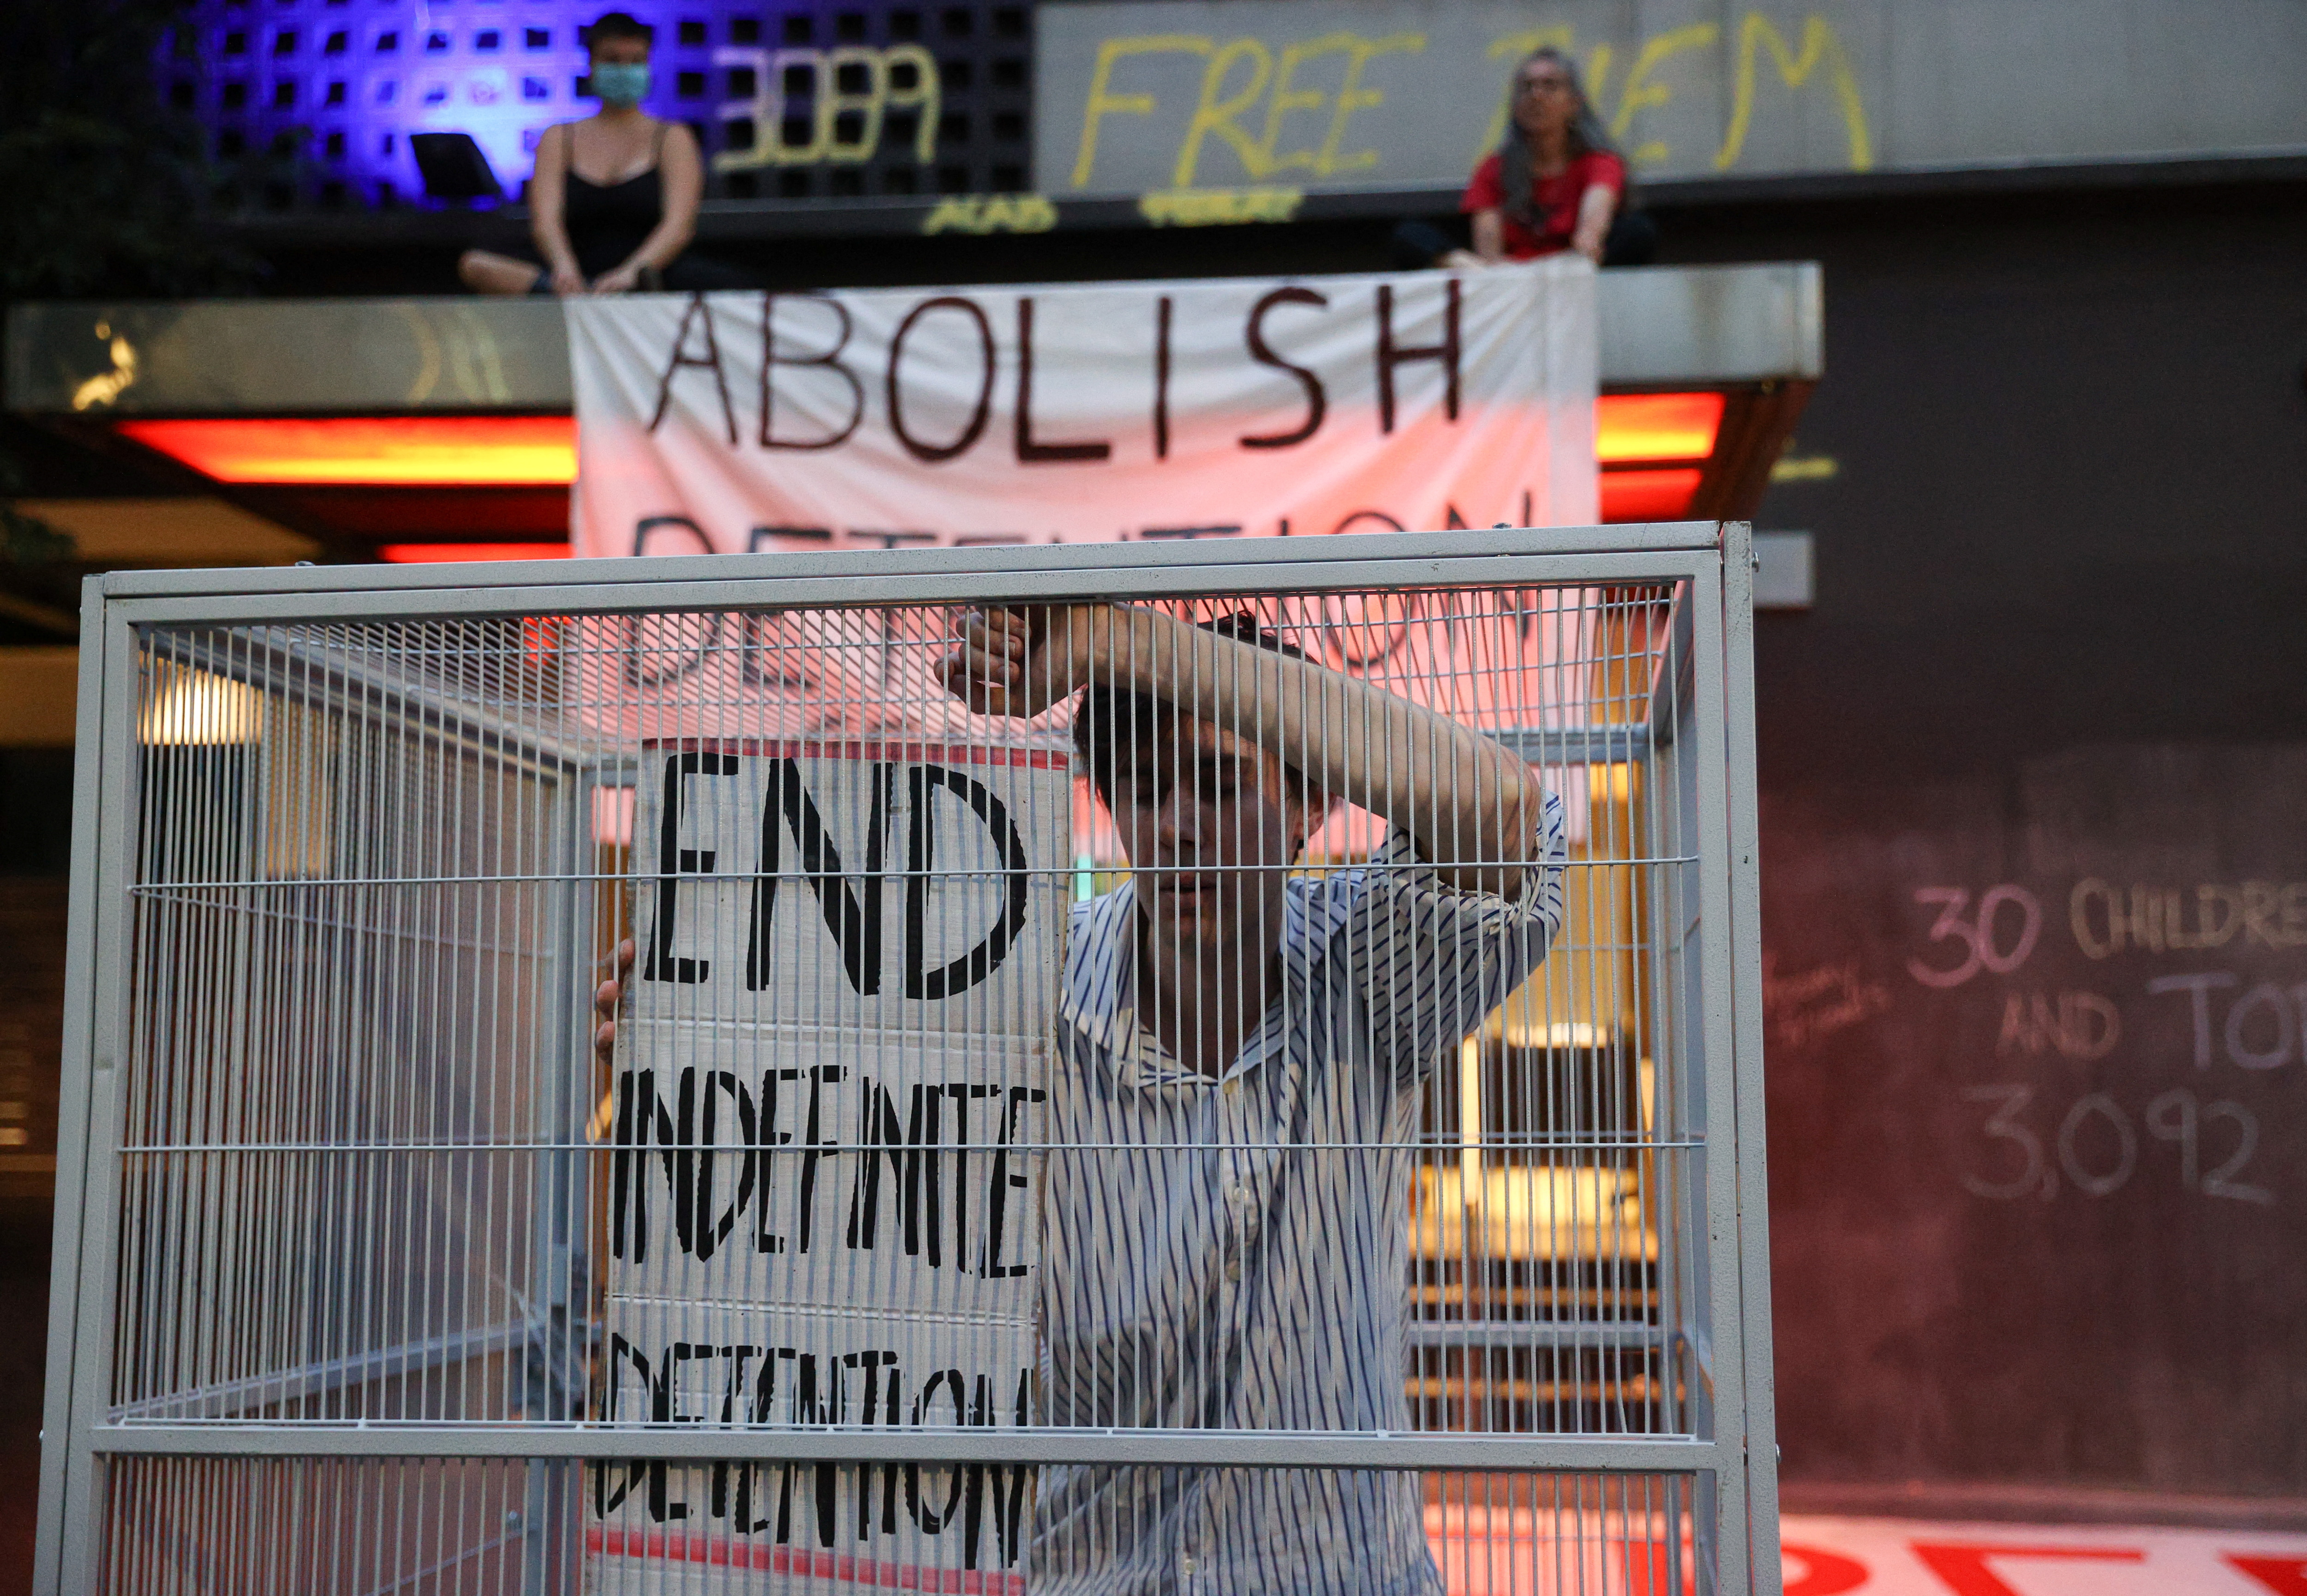 3089
FREE THEM
ACAB
ABOLISH
DETENTION
END
INDEFINITE
DETENTION
30 CHILDRE
AND TO
3,092